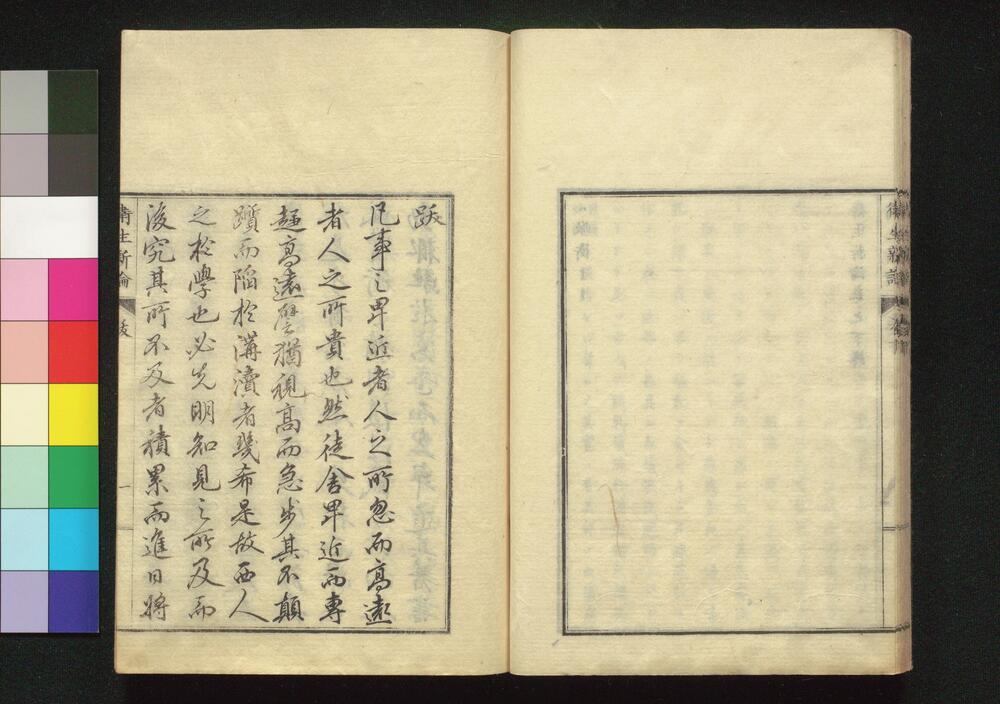 衛生新論
跋
凡事之卑近者人之所忽而高遠
者人之所貴也然徒舍卑近而専
趨高遠譬猶視高而急步其不顛
躓而陥於溝瀆者幾希是故西人
之於學也必先明知見之所及而
後究其所不及者積累而進日將
衛生新論
跋
一